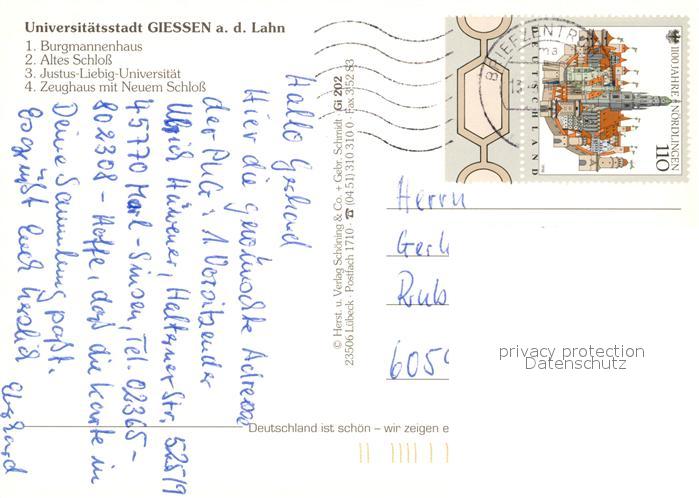 Universitätsstadt GIESSEN a. d. Lahn
1. Burgmannenhaus
2. Altes Schloß
3. Justus-Liebig-Universität
4. Zeughaus mit Neuem Schloß
Hallo Gerhard
Hier die gewünschte Adresse
der PhG: 1. Vorsitzender
Haltener Str. 525/9
45770 Marl-Sinsen, Tel. 02365-
802308 - Hoffe, daß die Karte in
Deine Sammlung paßt.
Es grüßt Euch herzlich Eberhard
© Herst. u. Verlag Schöning & Co. + Gebr. Schmidt · Gi 202
23506 Lübeck · Postfach 1710 · ☎ (04 51) 310 310 0 · Fax 3 52 83
BRIEFZENTRUM
1100 JAHRE NÖRDLINGEN
DEUTSCHLAND
110
Herrn
Gerh
6050
privacy protection
Datenschutz
Deutschland ist schön – wir zeigen e